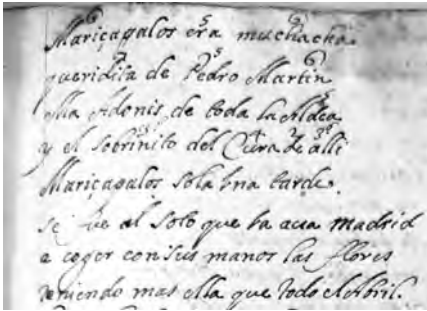 Mariçapalos era muchacha
queridita de Pedro Martin
ella Adonis de toda la Aldea
y el sobrinito del Cura de alli
Mariçapalos sola vna tarde
se fue al soto que ba acia madrid
a coger con sus manos las flores
teniendo mas ella que todo el Abril.